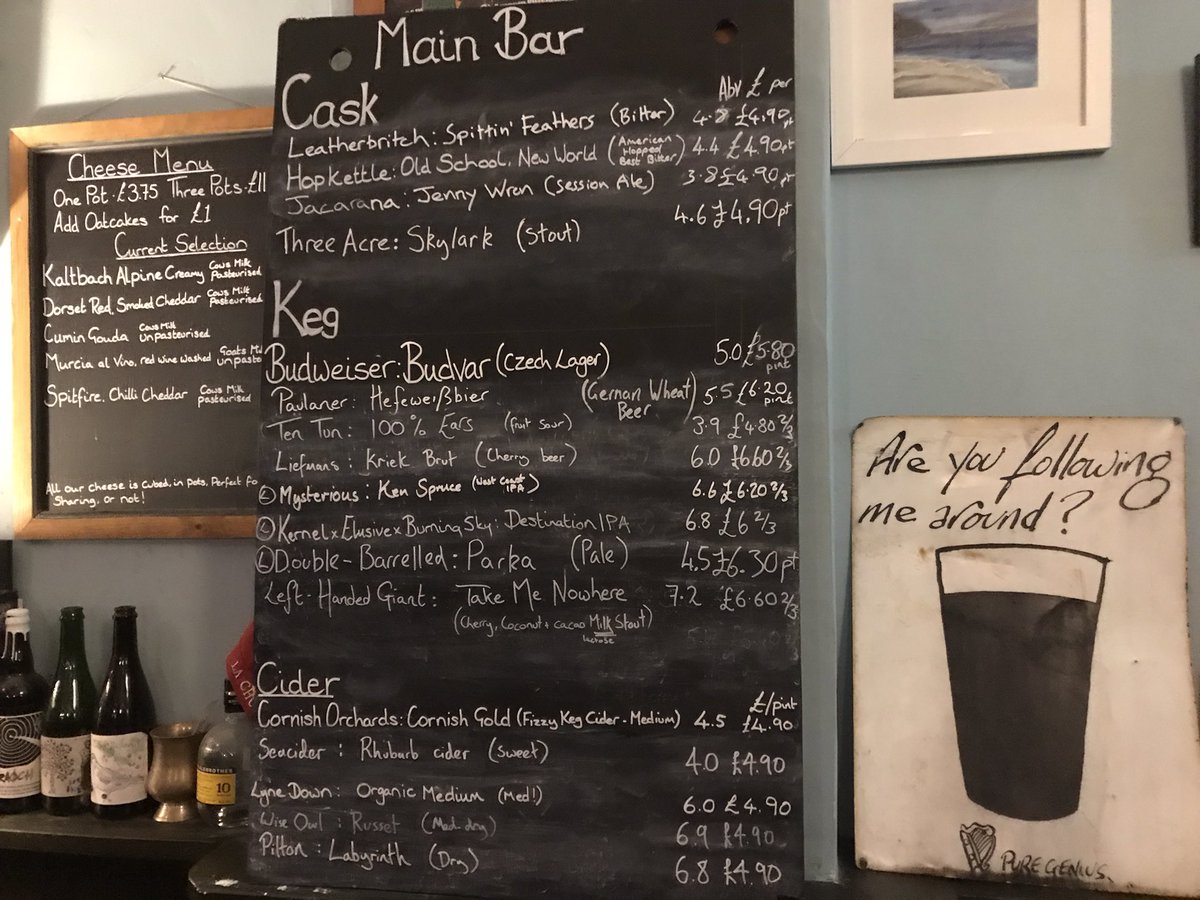 Cheese Menu
One Pot · £3.75 Three Pots · £11
Add Oatcakes for £1
Current Selection
Kaltbach Alpine Creamy Cows Milk Pasteurised
Dorset Red, Smoked Cheddar Cows Milk Pasteurised
Cumin Gouda Cows Milk Unpasteurised
Murcia al Vino, red wine washed Goats
Spitfire, Chilli Cheddar Cows Milk pasteurised
All our cheese is cubed, in pots, Perfect
Sharing, or not!
Main Bar
Cask Abv £ per
Leatherbritch: Spittin' Feathers (Bitter) £4.90pt
Hopkettle: Old School, New World (American Hopped Best Bitter) 4.4 £4.90pt
Jacarana: Jenny Wren (Session Ale) 3.8 £4.90pt
Three Acre: Skylark (Stout) 4.6 £4.90pt
Keg
Budweiser: Budvar (Czech Lager) 5.0 £5.80 pint
Paulaner: Hefeweißbier (German Wheat Beer) 5.5 £6.20 pint
Ten Tun: 100% Ears (fruit sour) 3.9 £4.80 2/3
Liefmans: Kriek Brut (Cherry beer) 6.0 £6.60 2/3
Mysterious: Ken Spruce (West Coast IPA) 6.6 £6.20 2/3
Kernel x Elusive x Burning Sky: Destination IPA 6.8 £6 2/3
Double-Barrelled: Parka (Pale) 4.5 £6.30 pt
Left-Handed Giant: Take Me Nowhere 7.2 £6.60 2/3
(Cherry, Coconut + cacao Milk Stout)
lactose
Cider £/pint
Cornish Orchards: Cornish Gold (Fizzy Keg Cider - Medium) 4.5 £4.90
Seacider: Rhubarb cider (Sweet) 4.0 £4.90
Lyne Down: Organic Medium (Med!) 6.0 £4.90
Wise Owl: Russet (Med-dry) 6.9 £4.90
Pilton: Labyrinth (Dry) 6.8 £4.90
Are you following
me around?
PURE GENIUS.
10